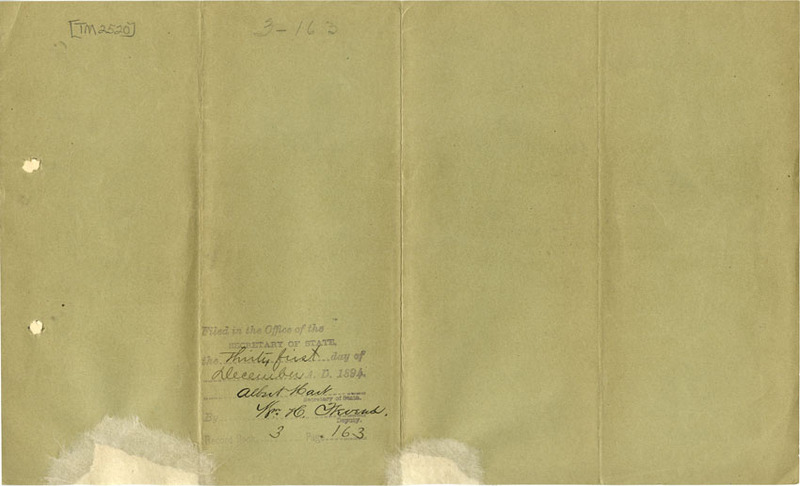 [TM2520]
3-163
Filed in the Office of the
SECRETARY OF STATE,
the Thirty first day of
December A. D. 1894.
Albert Hart
Secretary of State.
By Wm. H.
Deputy.
Record Book 3 Page 163